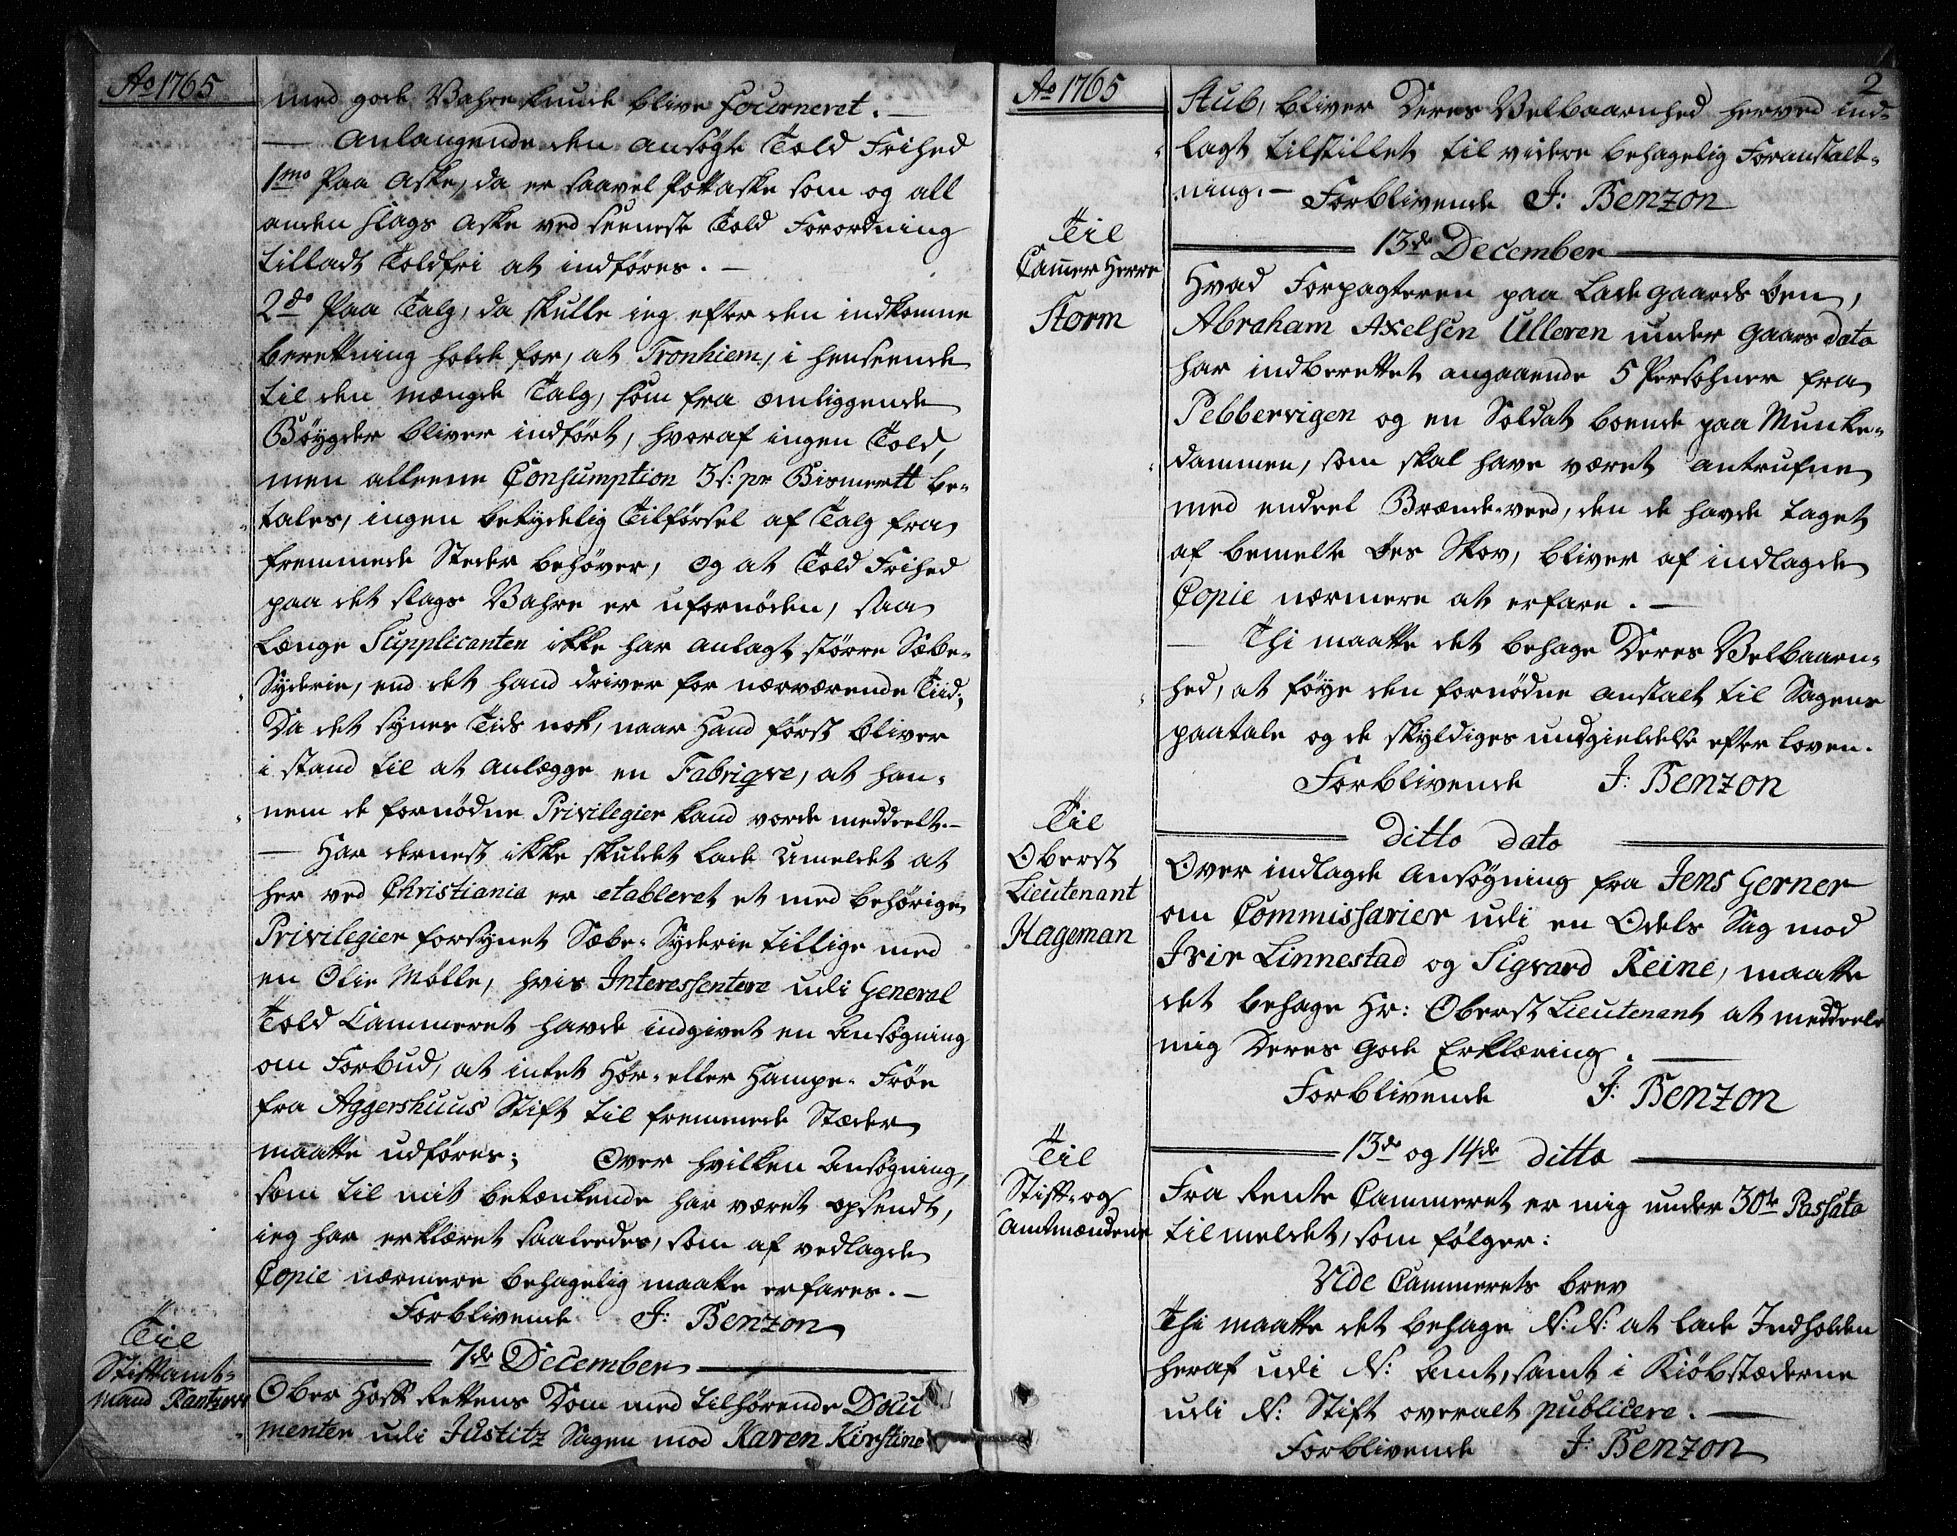 Ao 1765
med gode Vahre kunde blive fourneret. —
— Anlangende den ansøgte Told Frihed
1mo Paa Aske, da er saavel Pottaske som og all
anden slags Aske ved seeneste Told Forordning
tilladt Toldfri at indføres. —
2do Paa Talg, da skulle ieg efter den indkomne
beretning holde for, at Tronhiem, i henseende
til den mængde Talg, som fra omliggende
Bøygder bliver indført, hvoraf ingen Told,
men alleene Consumption 3 s: pr Bismertt be-
tales, ingen betydelig Tilførsel af Talg fra
fremmede Steder behøver, og at Told Frihed
paa det slags Vahre er ufornøden, saa
længe Supplicanten ikke har anlagt større Sæbe-
Syderie, end det hand driver for nærværende Tiid;
Da det synes Tids nok, naar Hand først bliver
i stand til at anlægge en Fabriqve, at han-
nem de fornødne Privilegier kand vorde meddeelt. —
— Har dernest ikke skuldet lade umeldet at
her ved Christiania er etableret et med behørige
Privilegier forsynet Sæbe-Syderie tillige med
en Olie Mølle, hvis Interessentere udi General
Told Cammeret havde indgivet en Ansøgning
om Forbud, at intet Hør- eller Hampe-Frøe
fra Aggershuus Stift til fremmede Stæder
maatte udføres; Over hvilken Ansøgning,
som til mit betænkende har været opsendt,
ieg har erklæret saaleedes, som af vedlagde
Copie nærmere behagelig maatte erfares. —
Forblivende J: Benzon
Til
Stiftamt-
mand Rantzow
7de December
Ober Hoff Rettens Dom med tilhørende Docu
menter udi Justitz Sagen mod Karen Kirstine
Ao 1765
2
Stub, bliver Deres Velbaarnhed herved ind-
lagt tilstillet til videre behagelig Foranstalt-
ning. — Forblivende J: Benzon
Til
Cammer Herre
Storm
13de December
Hvad Forpagteren paa Ladegaards Øen,
Abraham Axelsen Ulleren under Gaars dato
har indberettet angaaende 5 Persohner fra
Pebbervigen og en Soldat boende paa Munke-
dammen, som skal have været antrufne
med endeel Brænde-veed, den de havde taget
af bemelte Øes Skov, bliver af indlagde
Copie nærmere at erfare. —
— Thi maatte det behage Deres Velbaarn-
hed, at føye den fornødne anstalt til Sagens
paatale og de skyldiges undgieldelse efter Loven.
Forblivende J: Benzon
Til
Oberst
Lieutenant
Hageman
ditto dato
Over indlagde Ansøgning fra Jens Gerner
om Commissarier udi en Odels Sag mod
Iver Linnestad og Sigvard Reine, maatte
det behage Hr: Oberst Lieutenant at meddeele
mig Deres Gode Erklæring. —
Forblivende J: Benzon
Til
Stift- og
Amtmændene
13de og 14de ditto
Fra Rente Cammeret er mig under 30te Passato
tilmeldet, som følger:
Vide Cammerets brev
Thi maatte det behage N: N: at lade Indholden
heraf udi N: Amt, samt i Kiøbstæderne
udi N: Stift overalt publicere. —
Forblivende J: Benzon